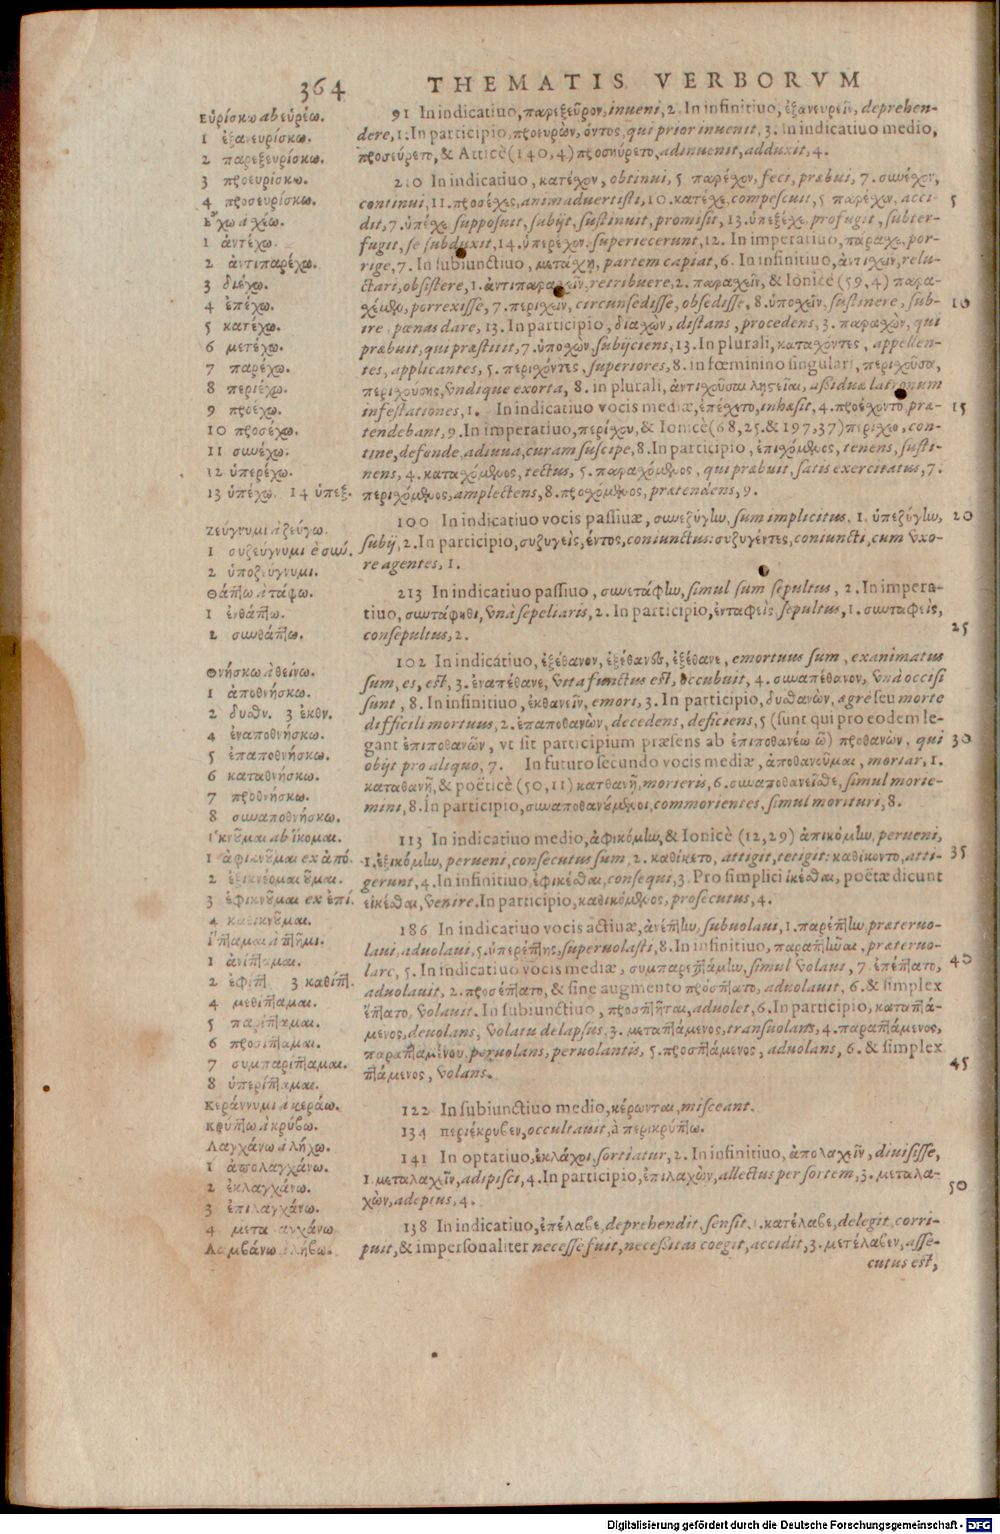 364 THEMATIS VERBORVM
Εὑρίσκω ab εὑρέω.
1 ἐξανευρίσκω.
2 παρεξευρίσκω.
3 προευρίσκω.
4 προσευρίσκω.
Ἔχω à χέω.
1 ἀντέχω.
2 ἀντιπαρέχω.
3 διέχω.
4 ἐπέχω.
5 κατέχω.
6 μετέχω.
7 παρέχω.
8 περιέχω.
9 προέχω.
10 προσέχω.
11 συνέχω.
12 ὑπερέχω.
13 ὑπέχω. 14 ὑπεξ.
Ζεύγνυμι à ζεύγω.
1 συζεύγνυμι è συν́.
2 ὑποζεύγνυμι.
Θάπτω à τάφω.
1 ἐνθάπτω.
2 συνθάπτω.
Θνήσκω à θείνω.
1 ἀποθνήσκω.
2 δυσθν. 3 ἐκθν.
4 ἐναποθνήσκω.
5 ἐπαποθνήσκω.
6 καταθνήσκω.
7 προθνήσκω.
8 συναποθνήσκω.
Ἱκνοῦμαι ab ἵκομαι.
1 ἀφικνοῦμαι ex ἀπό.
2 ἐξικνέομαι οῦμαι.
3 ἐφικνοῦμαι ex ἐπί.
4 καθικνοῦμαι.
Ἵπταμαι à πτῆμι.
1 ἀνίπταμαι.
2 ἐφίπτ 3 καθίπτ.
4 μεθίπταμαι.
5 παρίπταμαι.
6 προσίπταμαι.
7 συμπαρίπταμαι.
8 ὑπερίπταμαι.
Κεράννυμι à κεράω.
Κρύπτω à κρύβω.
Λαγχάνω à λήχω.
1 ἀπολαγχάνω.
2 ἐκλαγχάνω.
3 ἐπιλαγχάνω.
4 μεταλαγχάνω
Λαμβάνω à λήβω.
91 In indicatiuo, παρεξεῦρον, inueni, 2. In infinitiuo, ἐξανευρεῖν, deprehen-
dere, 1. In participio, προευρὼν, όντος, qui prior inuenit, 3. In indicatiuo medio,
προσεύρετο, & Atticè (140, 4) προσηύρετο, adinuenit, adduxit, 4.
210 In indicatiuo, κατέχον, obtinui, 5 παρέχον, feci, præbui, 7. συνέχον,
continui, 11. προσέχες, animaduertisti, 10. κατέχε, compescuit, 5 παρέχεν, acci- 5
dit, 7. ὑπέχε supposuit, subijt, sustinuit, promisit, 13. ὑπεξέχε, profugit, subter-
fugit, se subduxit, 14. ὑπερέχον, superiecerunt, 12. In imperatiuo, παραχε, por-
rige, 7. In subiunctiuo, μετάχῃ, partem capiat, 6. In infinitiuo, ἀντιχεῖν, relu-
ctari, obsistere, 1. ἀντιπαραχεῖν, retribuere, 2. παραχεῖν, & Ionicè (59, 4) παρα-
χέμεν, porrexisse, 7. περιχεῖν, circunsedisse, obsedisse, 8. ὑποχεῖν, sustinere, sub- 10
ire, pœnas dare, 13. In participio, διαχὼν, distans, procedens, 3. παραχὼν, qui
præbuit, qui præstitit, 7. ὑποχὼν, subijciens, 13. In plurali, καταχόντες, appellen-
tes, applicantes, 5. περιχόντες, superiores, 8. in fœminino singulari, περιχοῦσα,
περιχούσης, vndique exorta, 8. in plurali, ἀντιχοῦσαι λῃστεῖαι, assiduæ latronum
infestationes, 1. In indicatiuo vocis mediæ, ἐπέχετο, inhæsit, 4. προέχοντο, præ- 15
tendebant, 9. In imperatiuo, περίχου, & Ionicè (68, 25. & 197, 37) περίχεο, con-
tine, defende, adiuua, curam suscipe, 8. In participio, ἐπιχόμενος, tenens, susti-
nens, 4. καταχόμενος, tectus, 5. παραχόμενος, qui præbuit, satis exercitatus, 7.
περιχόμενος, amplectens, 8. προχόμενος, prætendens, 9.
100 In indicatiuo vocis passiuæ, συνεζύγην, sum implicitus. 1. ὑπεζύγην, 20
subij, 2. In participio, συζυγεὶς, έντος, coniunctus: συζυγέντες, coniuncti, cum vxo-
re agentes, 1.
213 In indicatiuo passiuo, συνετάφην, simul sum sepultus, 2. In impera-
tiuo, συντάφηθι, vnà sepeliaris, 2. In participio, ἐνταφεὶς, sepultus, 1. συνταφεὶς,
consepultus, 2. 25
102 In indicatiuo, ἐξέθανον, ἐξέθανες, ἐξέθανε, emortuus sum, exanimatus
sum, es, est, 3. ἐναπέθανε, vita functus est, occubuit, 4. συναπέθανον, vnà occisi
sunt, 8. In infinitiuo, ἐκθανεῖν, emori, 3. In participio, δυσθανὼν, ægrè seu morte
difficili mortuus, 2. ἐπαποθανὼν, decedens, deficiens, 5 (sunt qui pro eodem le-
gant ἐπιποθανῶν, vt sit participium præsens ab ἐπιποθανέω ῶ) προθανὼν, qui 30
obijt pro aliquo, 7. In futuro secundo vocis mediæ, ἀποθανοῦμαι, moriar, 1.
καταθανῇ, & poëticè (50, 11) κατθανῇ, morieris, 6. συναποθανεῖσθε, simul morie-
mini, 8. In participio, συναποθανούμενοι, commorientes, simul morituri, 8.
113 In indicatiuo medio, ἀφικόμην, & Ionicè (12, 29) ἀπικόμην, perueni,
1. ἐξικόμην, perueni, consecutus sum, 2. καθίκετο, attigit, tetigit: καθίκοντο, atti- 35
gerunt, 4. In infinitiuo, ἐφικέσθαι, consequi, 3. Pro simplici ἱκέσθαι, poëtæ dicunt
εἰκέσθαι, venire. In participio, καθικόμενος, prosecutus, 4.
186 In indicatiuo vocis actiuæ, ἀνέπτην, subuolaui, 1. παρέπτην, præteruo-
laui, aduolaui, 5. ὑπερέπτης, superuolasti, 8. In infinitiuo, παραπτῆναι, præteruo-
lare, 5. In indicatiuo vocis mediæ, συμπαρεπτάμην, simul volaui, 7. ἐπέπτατο, 40
aduolauit, 2. προσέπτατο, & sine augmento πρόσπτατο, aduolauit, 6. & simplex
ἔπτατο, volauit. In subiunctiuo, προσπτῆται, aduolet, 6. In participio, καταπτά-
μενος, deuolans, volatu delapsus, 3. μεταπτάμενος, transuolans, 4. παραπτάμενος,
παραπταμένου, peruolans, peruolantis, 5. προσπτάμενος, aduolans, 6. & simplex
πτάμενος, volans. 45
122 In subiunctiuo medio, κέρωνται, misceant.
134 περιέκρυβεν, occultauit, à περικρύπτω.
141 In optatiuo, ἐκλάχοι, sortiatur, 2. In infinitiuo, ἀπολαχεῖν, diuisisse,
1. μεταλαχεῖν, adipisci, 4. In participio, ἐπιλαχὼν, allectus per sortem, 3. μεταλα-
χὼν, adeptus, 4. 50
138 In indicatiuo, ἐπέλαβε, deprehendit, sensit. κατέλαβε, delegit, corri-
puit, & impersonaliter necesse fuit, necessitas coegit, accidit, 3. μετέλαβεν, asse-
cutus est,
Digitalisierung gefördert durch die Deutsche Forschungsgemeinschaft - DFG